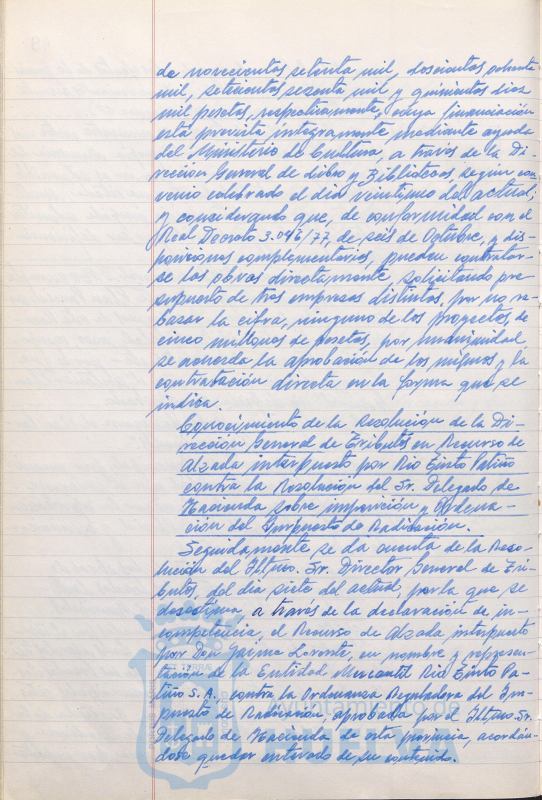 de novecientos setenta mil, doscientas ochenta
mil, setecientas sesenta mil y quinientas diez
mil pesetas, respectivamente, cuya financiación
está prevista integramente mediante ayuda
del Ministerio de Cultura, a través de la Di-
rección General de Libro y Bibliotecas según con
venio celebrado el día veintiuno del actual;
y considerando que, de conformidad con el
Real Decreto 3.046/77, de seis de Octubre, y dis-
posiciones complementarias, pueden contratar-
se las obras directamente, solicitando pre-
supuesto de tres empresas distintas, por no re-
basar la cifra, ninguno de los proyectos, de
cinco millones de pesetas, por unanimidad
se acuerda la aprobación de los mismos y la
contratación directa en la forma que se
indica.
Conocimiento de la Resolución de la Di-
rección General de Tributos en Recurso de
Alzada interpuesto por Rio Tinto Patiño
contra la Resolución del Sr. Delegado de
Hacienda sobre imposición y Ordena-
ción del Impuesto de Radicación.
Seguidamente se da cuenta de la Reso-
lución del Iltmo. Sr. Director General de Tri-
butos, del día siete del actual, por la que se
desestima, a través de la declaración de in-
competencia, el Recurso de Alzada interpuesto
por Don Jaime Lorente, en nombre y represen-
tación de la Entidad Mercantil Rio Tinto Pa-
tiño S.A., contra la Ordenanza Reguladora del Im-
puesto de Radicación, aprobada por el Iltmo. Sr.
Delegado de Hacienda de esta provincia, acordán-
dose quedar enterado de su contenido.
Ayuntamiento de
HUELVA